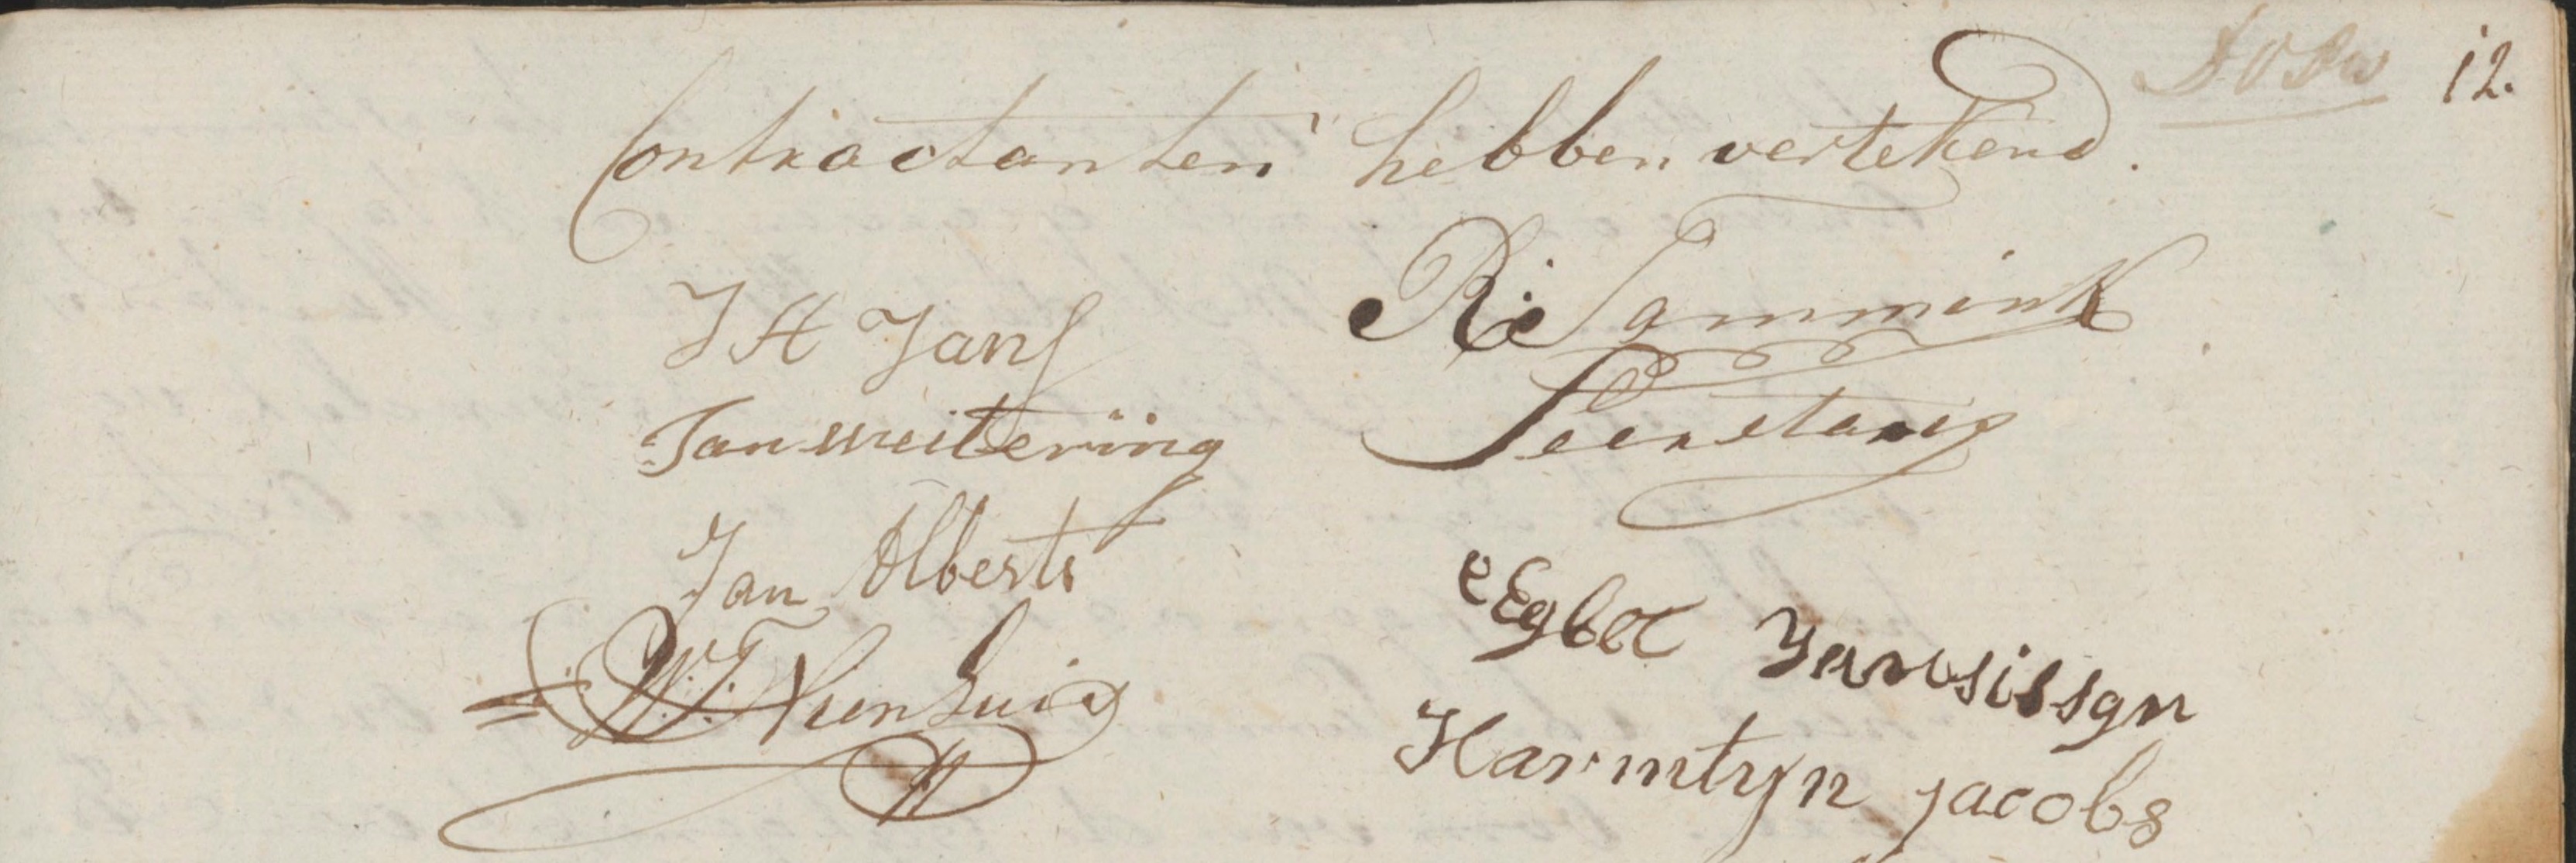 12.
Contractanten hebben vertekend.
J H Jans
Jan weitering
Jan Alberts
W. J. Nienhuis
R: Tammink
Secretaris
Egbet
Harmtyn jacobs